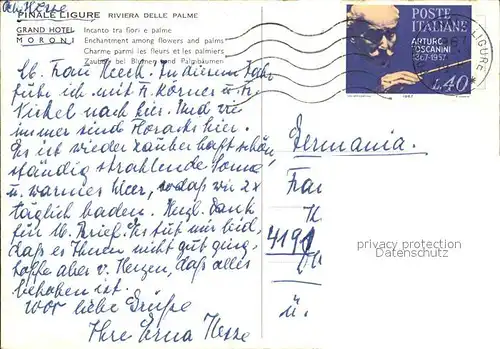 FINALE LIGURE RIVIERA DELLE PALME
GRAND HOTEL
MORONI
Incanto tra fiori e palme
Enchantment among flowers and palms
Charme parmi les fleurs et les palmiers
Zauber bei Blumen und Palmbäumen
POSTE
ITALIANE
ARTURO
TOSCANINI
1867-1957
L.40
1967
LIGURE
Lb. Frau Heeck. In diesem Jahr
fuhr ich mit Fr. Körner u. Fr.
Nickel nach hier. Und wie
immer sind Horacks hier.
Es ist wieder zauberhaft schön
ständig strahlende Sonne
u. warmes Meer, sodaß wir 2x
täglich baden. Herzl. Dank
für lb. Brief. Es tut mir leid,
daß es Ihnen nicht gut ging,
hoffe aber v. Herzen, daß alles
behoben ist.
liebe Grüße
Ihre Erna Hesse
Germania.
Frau
4191
u.
privacy protection
Datenschutz